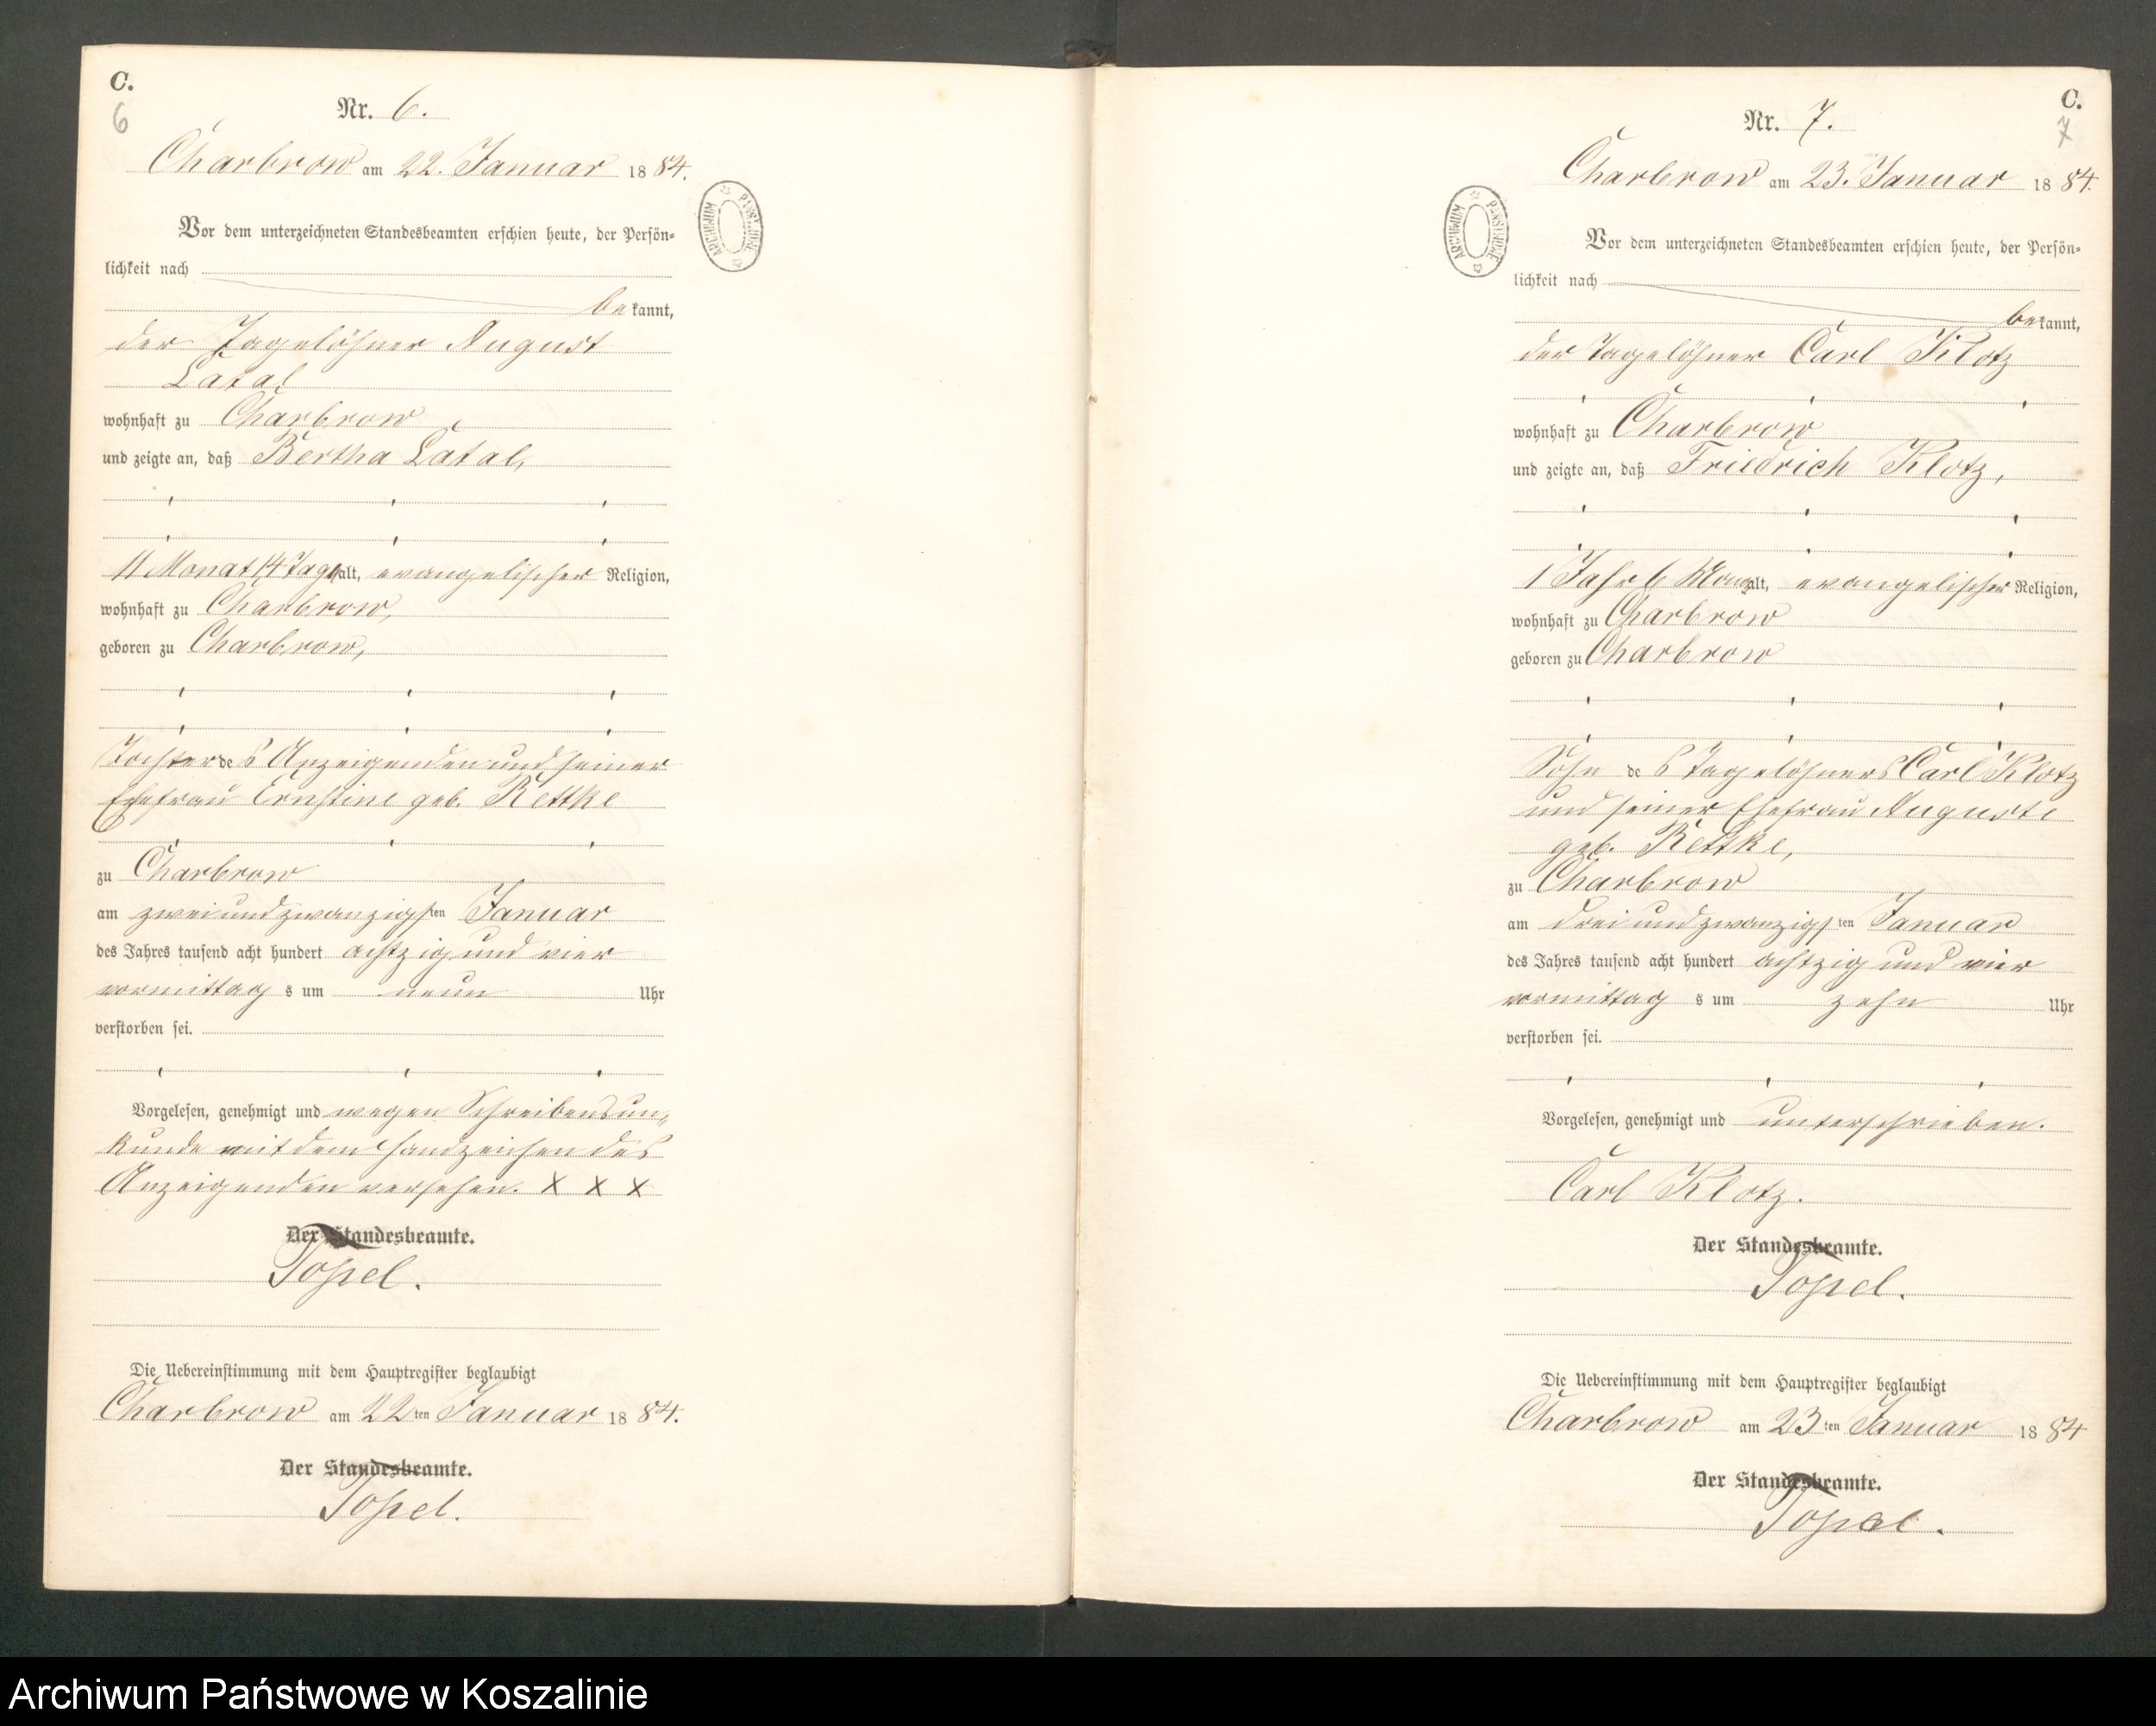 C.
6
Nr. 6.
Charbrow am 22. Januar 1884.
Vor dem unterzeichneten Standesbeamten erschien heute, der Persön=
lichkeit nach
bekannt,
der Tagelöhner August
Latal
wohnhaft zu Charbrow
und zeigte an, daß Bertha Latal,
11 Monat 14 Tage alt, evangelischer Religion,
wohnhaft zu Charbrow,
geboren zu Charbrow,
Tochter des Anzeigenden und seiner
Ehefrau Ernstine geb. Rettke
zu Charbrow
am zwei und zwanzigsten Januar
des Jahres tausend acht hundert achtzig und vier
vormittags um neun Uhr
verstorben sei.
Vorgelesen, genehmigt und wegen Schreibensun=
kunde mit dem Handzeichen des
Anzeigenden versehen. X X X
Der Standesbeamte.
Topel.
Die Uebereinstimmung mit dem Hauptregister beglaubigt
Charbrow am 22ten Januar 1884.
Der Standesbeamte.
Topel.
ARCHIWUM PAŃSTWOWE
C.
7
Nr. 7.
Charbrow am 23. Januar 1884.
Vor dem unterzeichneten Standesbeamten erschien heute, der Persön=
lichkeit nach
bekannt,
der Tagelöhner Carl Klotz
wohnhaft zu Charbrow
und zeigte an, daß Friedrich Klotz,
1 Jahr 6 Monat alt, evangelischer Religion,
wohnhaft zu Charbrow
geboren zu Charbrow
Sohn des Tagelöhners Carl Klotz
und seiner Ehefrau Auguste
geb. Rettke,
zu Charbrow
am drei und zwanzigsten Januar
des Jahres tausend acht hundert achtzig und vier
vormittags um zehn Uhr
verstorben sei.
Vorgelesen, genehmigt und unterschrieben.
Carl Klotz.
Der Standesbeamte.
Topel.
Die Uebereinstimmung mit dem Hauptregister beglaubigt
Charbrow am 23ten Januar 1884
Der Standesbeamte.
Topel.
ARCHIWUM PAŃSTWOWE
Archiwum Państwowe w Koszalinie